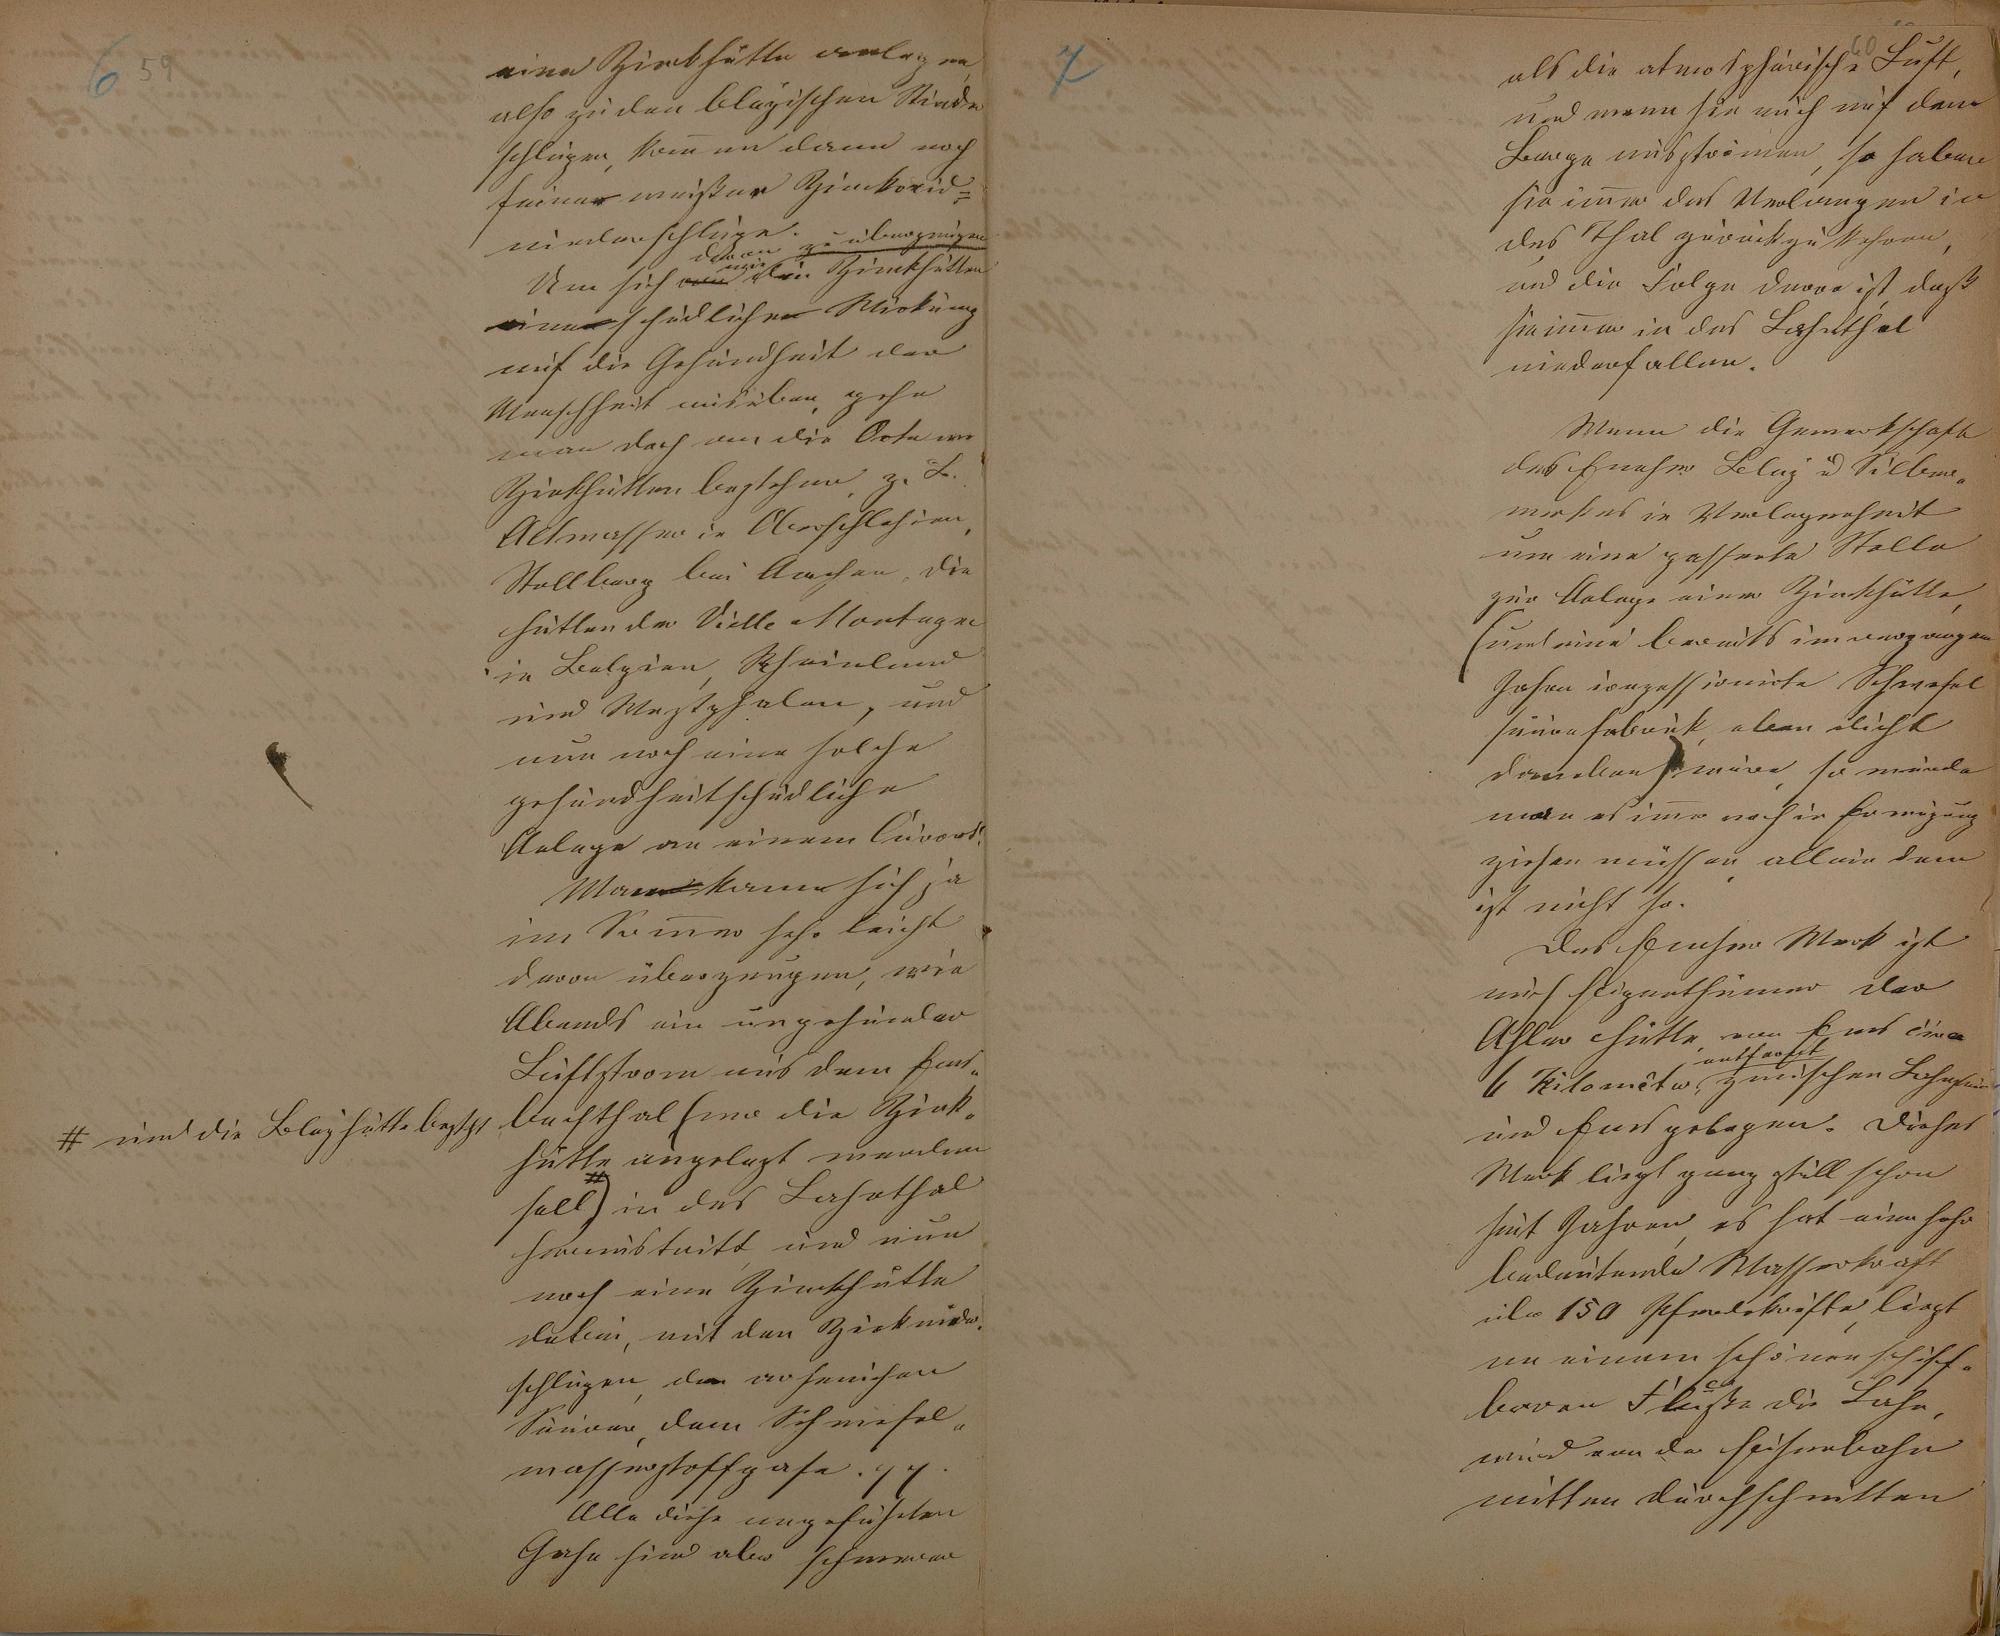 6 59
eine Zinkhütte anlegen,
also zu den bleyischen Nieder
schlägen, kom̅en dann noch
feiner weißer Zinkoxid=
niederschläge.
davon zu überzeugen
Um sich wie die Zinkhütten
einen schädlichen Wirkung
auf die Gesundheit der
Menschheit ausüben, gehe
man doch an die Orte wo
Zinkhütten bestehen, z. B.
Altwasser in Oberschlesien,
Stollberg bei Aachen, die
Hütten der Vielle Montagne
in Belgien, Rheinland
und Westphalen, und
nun noch eine solche
gesundheitschädliche
Anlage an einem Curort!
Man kann sich ja
im Som̅er sehr leicht
davon überzeugen, wie
Abends ein ungesunder
Luftstrom aus dem Ems-
bachthal (wo die Zink-
# und die Bleyhütte besteht
hütte angelegt werden
soll #) in das Lahnthal
herraustritt, und nun
noch eine Zinkhütte
dabei, mit den Zinknieder-
schlägen, den arsenichen
Säuren, dem Schwefel-
wasserstoffgase. pp.
Alle diese angeführten
Gase sind aber schwerer
7 60
als die atmosphärische Luft,
und wenn sie auch auf dem
Berge ausströmen, so haben
sie im̅er das Verlangen in
das Thal zurückzukehren,
und die Folge davon ist, daß
sie im̅er in das Lahnthal
niederfallen.
Wenn die Gewerkschaft
des Emser Bley u Silber-
werkes in Verlegenheit
um eine passende Stelle
zur Anlage einer Zinkhütte,
(und eine bereits im vergangen
Jahre conzessionirte Schwefel
säurefabrik, eben dicht
daneben) wäre, so würde
man es im̅er noch in Erwägung
ziehen müssen, allein dem
ist nicht so.
Das Emser Werk ist
auch Eigenthümer der
Ahler Hütte, von Ems circa
entfernt
6 Kilometer, zwischen Lahnstein
und Ems gelegen. Dieses
Werk liegt ganz still schon
seit Jahren, es hat eine sehr
bedeutende Wasserkraft
über 150 Pferdekräfte, liegt
an einem schönen schiff-
baren Fluße die Lahn,
wird von der Eisenbahn
mitten durchschnitten